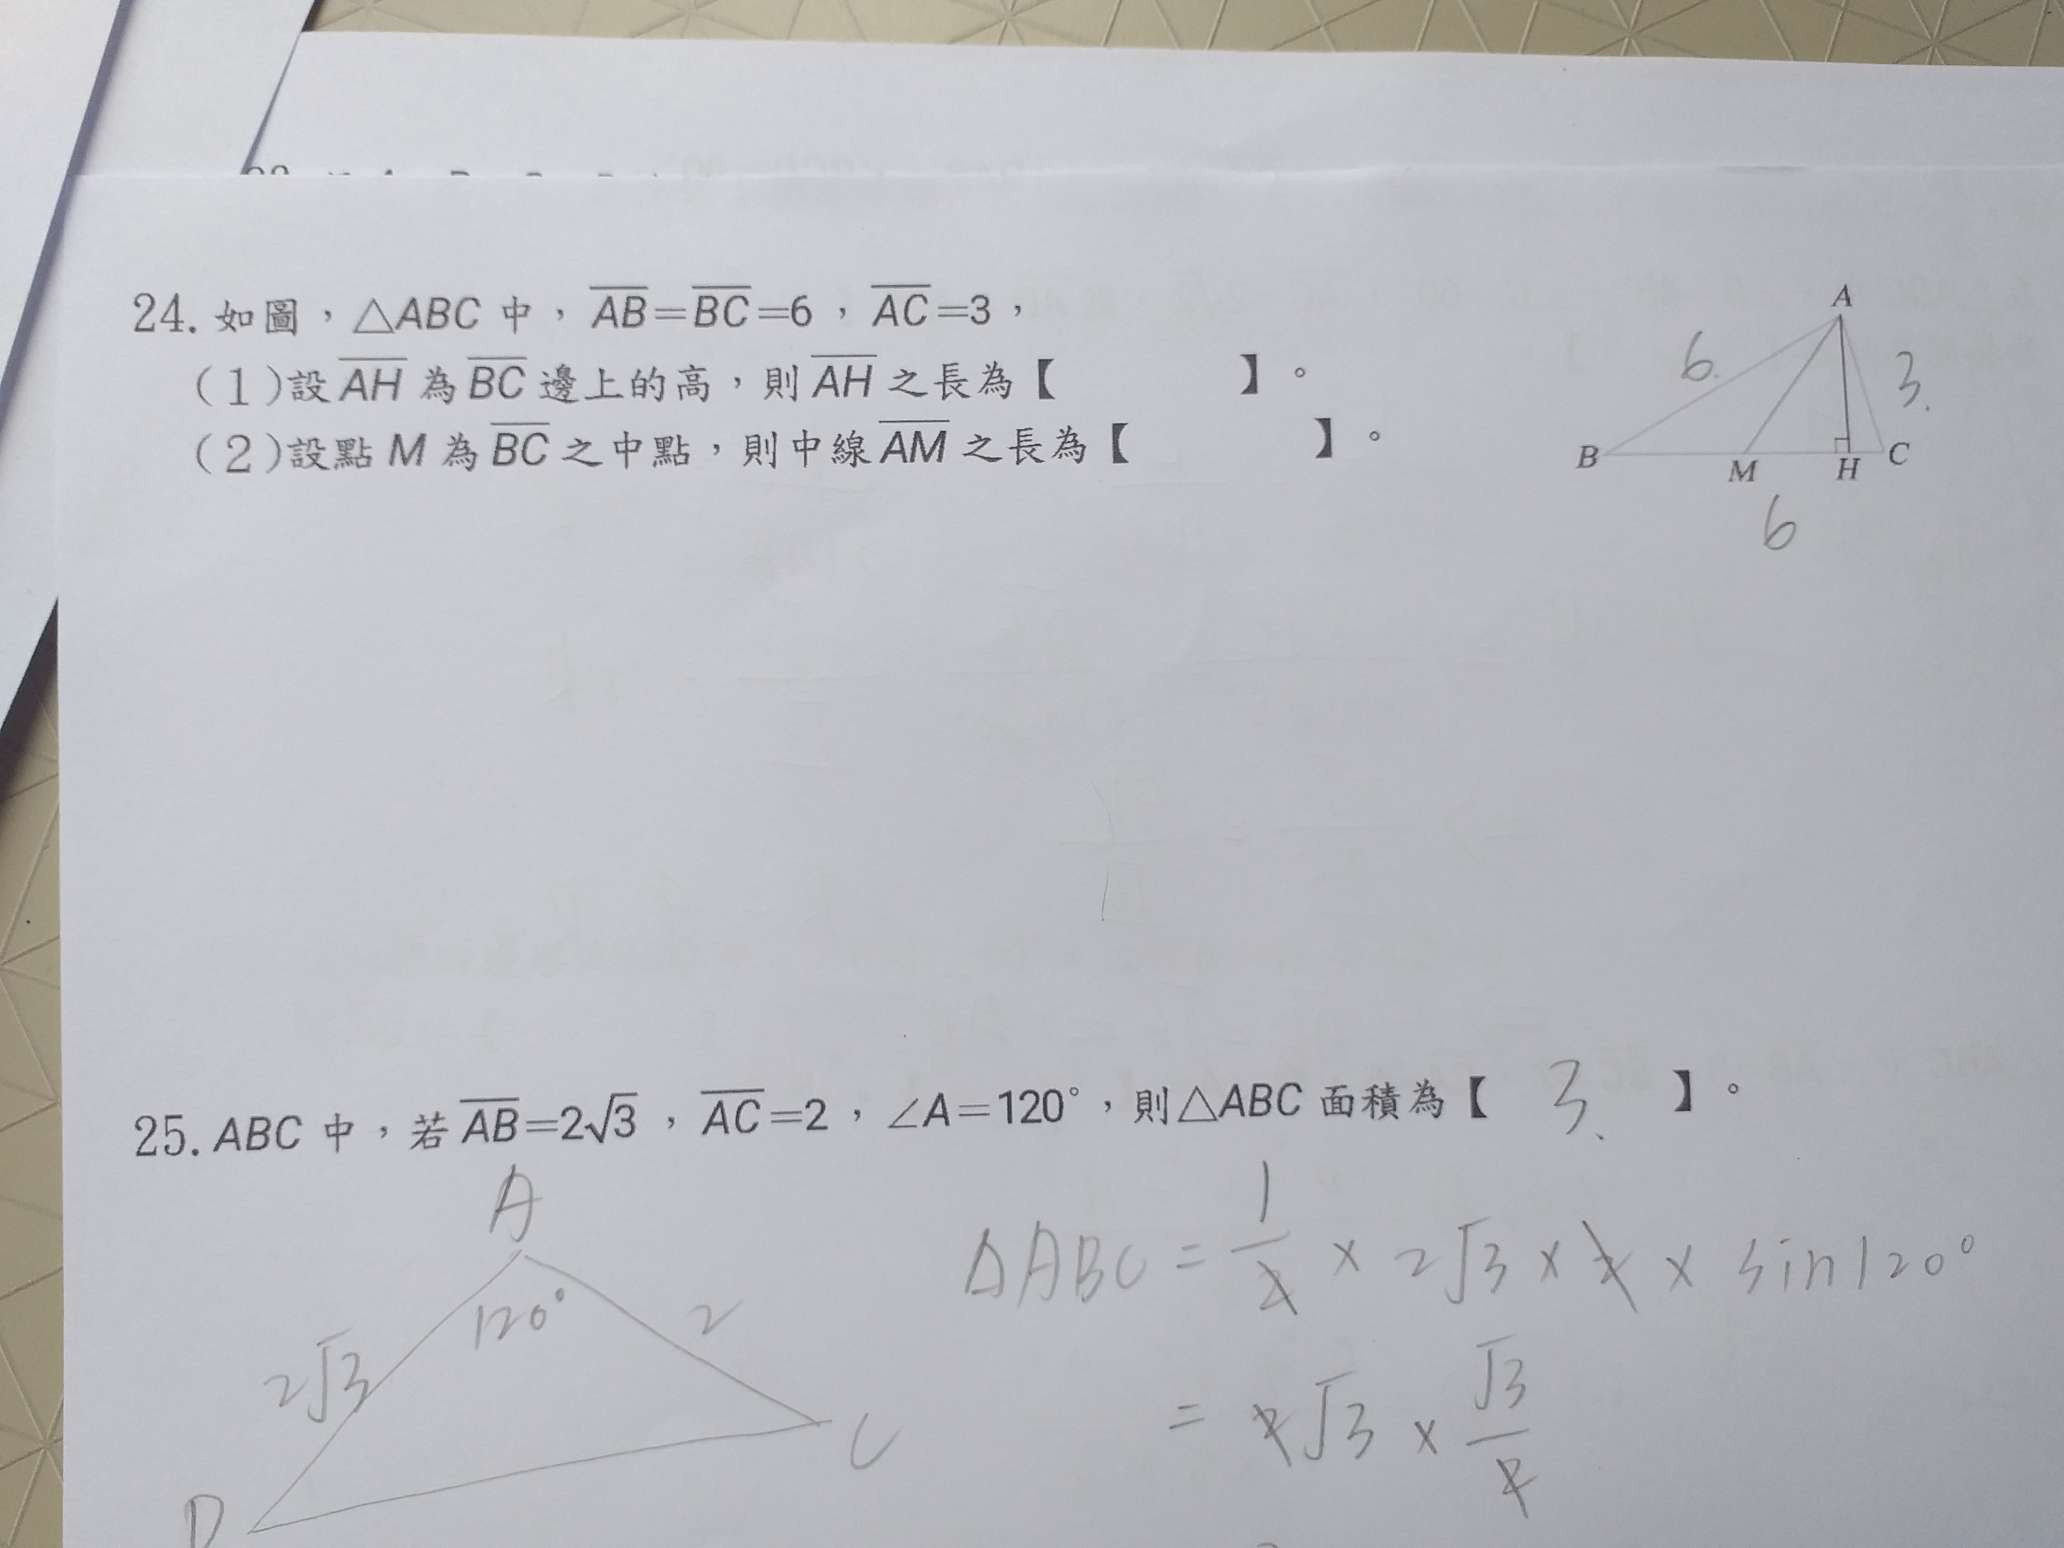 24. 如圖，△ABC 中，AB=BC=6，AC=3，
(1)設 AH 為 BC 邊上的高，則 AH 之長為【 】。
(2)設點 M 為 BC 之中點，則中線 AM 之長為【 】。
A
6.
3.
B
M
H
C
6
25. ABC 中，若 AB=2√3，AC=2，∠A=120°，則△ABC 面積為【 3、 】。
A
120°
2√3
2
C
△ABC = 1/2 × 2√3 × 2 × sin120°
= 2√3 × √3/2